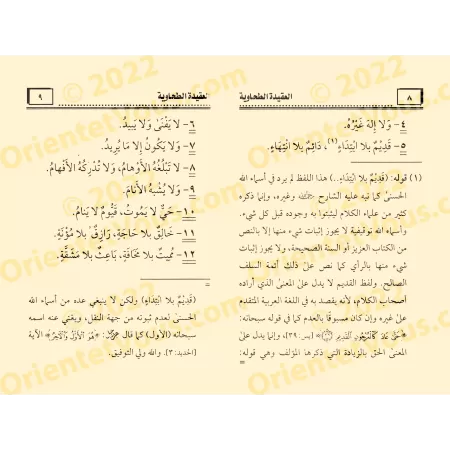 ٨
العقيدة الطحاوية
٤- وَلا إِلهَ غَيْرُهُ.
٥- قَدِيْمٌ بِلا ابْتِدَاءٍ(١)، دَائِمٌ بِلا انْتِهَاءٍ.
(١) قوله: (قَدِيْمٌ بلا ابْتِدَاءٍ..) هذا اللفظ لم يرد في أسماء الله
الحسنى كما نبه عليه الشارح وغيره، وإنما ذكره
كثير من علماء الكلام ليثبتوا به وجوده قبل كل شيء.
وأسماء الله توقيفية لا يجوز إثبات شيء منها إلا بالنص
من الكتاب العزيز أو السنة الصحيحة، ولا يجوز إثبات
شيء منها بالرأي كما نص على ذلك أئمة السلف
الصالح. ولفظ القديم لا يدل على المعنى الذي أراده
أصحاب الكلام، لأنه يقصد به في اللغة العربية المتقدم
على غيره وإن كان مسبوقًا بالعدم كما في قوله سبحانه:
﴿حَتَّى عَادَ كَالْعُرْجُونِ الْقَدِيمِ﴾ [يس: ٣٩]، وإنما يدل على
المعنى الحق بالزيادة التي ذكرها المؤلف وهي قوله:
=
العقيدة الطحاوية
٩
٦- لا يَفْنَى وَلا يَبِيدُ.
٧- وَلا يَكُونُ إِلا مَا يُرِيدُ.
٨- لا تَبْلُغُهُ الأَوْهَامُ، وَلا تُدْرِكُهُ الأَفْهَامُ.
٩- وَلا يُشْبِهُ الأَنَامَ.
١٠- حَيٌّ لا يَمُوتُ، قَيُّومٌ لا يَنَامُ.
١١- خَالِقٌ بِلا حَاجَةٍ، رَازِقٌ بِلا مُؤْنَةٍ.
١٢- مُمِيتٌ بِلا مَخَافَةٍ، بَاعِثٌ بِلا مَشَقَّةٍ.
=
(قَدِيْمٌ بلا ابْتِدَاءٍ) ولكن لا ينبغي عده من أسماء الله
الحسنى لعدم ثبوته من جهة النقل، ويغني عنه اسمه
سبحانه (الأول) كما قال: ﴿هُوَ الْأَوَّلُ وَالْآخِرُ﴾ الآية
[الحديد: ٣]. والله ولي التوفيق.
© 2022